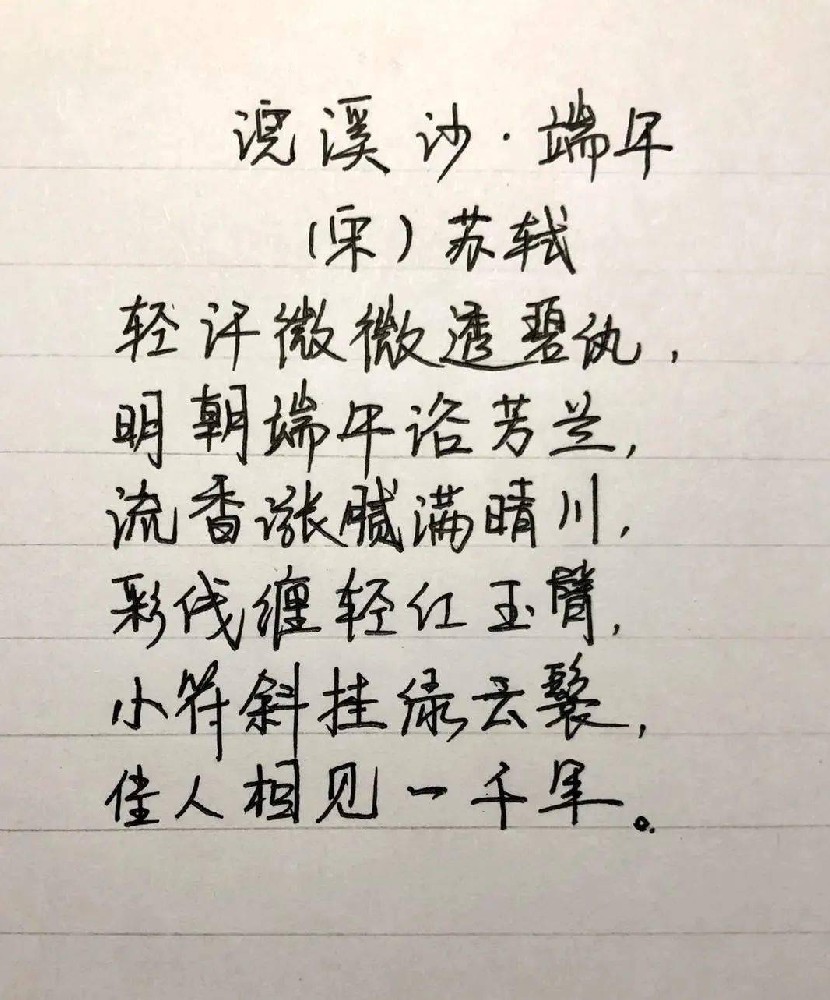 浣溪沙·端午
(宋)苏轼
轻汗微微透碧纨,
明朝端午浴芳兰,
流香涨腻满晴川,
彩线缠轻红玉臂,
小符斜挂绿云鬟,
佳人相见一千年。